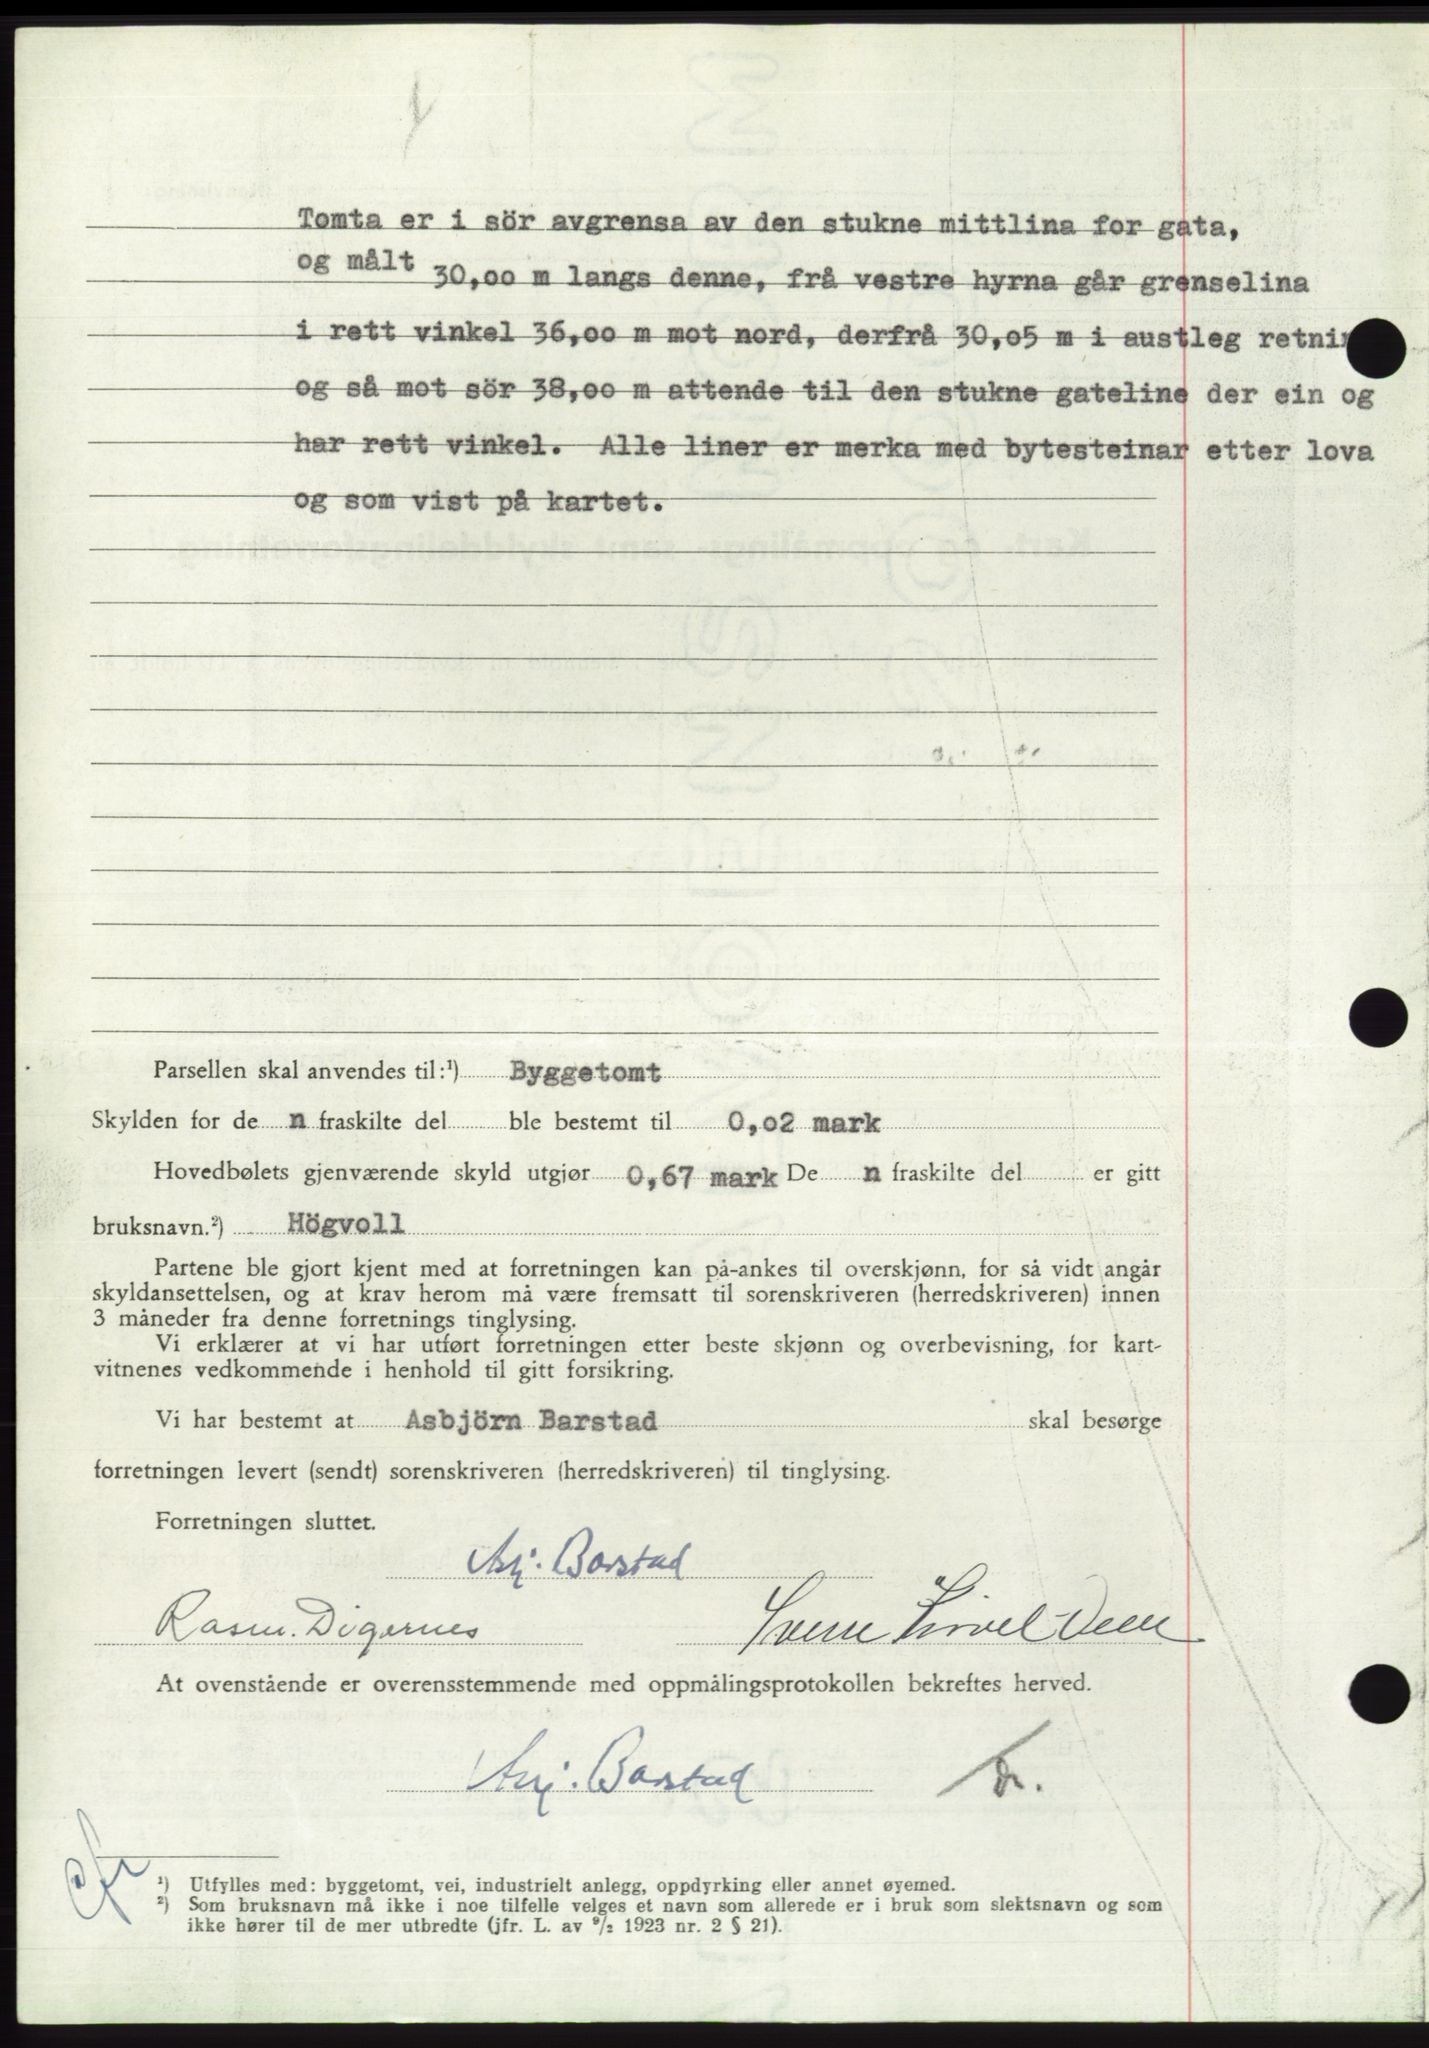 Tomta er i sör avgrensa av den stukne mittlina for gata,
og målt 30,00 m langs denne, frå vestre hyrna går grenselina
i rett vinkel 36,00 m mot nord, derfrå 30,05 m i austleg
og så mot sör 38,00 m attende til den stukne gateline der ein og
har rett vinkel. Alle liner er merka med bytesteinar etter lova
og som vist på kartet.
Parsellen skal anvendes til:¹) Byggetomt
Skylden for de n fraskilte del ble bestemt til 0,02 mark
Hovedbølets gjenværende skyld utgjør 0,67 mark De n fraskilte del er gitt
bruksnavn.²) Högvoll
Partene ble gjort kjent med at forretningen kan på-ankes til overskjønn, for så vidt angår
skyldansettelsen, og at krav herom må være fremsatt til sorenskriveren (herredskriveren) innen
3 måneder fra denne forretnings tinglysing.
Vi erklærer at vi har utført forretningen etter beste skjønn og overbevisning, for kart-
vitnenes vedkommende i henhold til gitt forsikring.
Vi har bestemt at Asbjörn Barstad skal besørge
forretningen levert (sendt) sorenskriveren (herredskriveren) til tinglysing.
Forretningen sluttet.
Asj. Barstad
Rasm. Digernes
At ovenstående er overensstemmende med oppmålingsprotokollen bekreftes herved.
Asj. Barstad
cfr
¹) Utfylles med: byggetomt, vei, industrielt anlegg, oppdyrking eller annet øyemed.
²) Som bruksnavn må ikke i noe tilfelle velges et navn som allerede er i bruk som slektsnavn og som
ikke hører til de mer utbredte (jfr. L. av ⁹/₂ 1923 nr. 2 § 21).